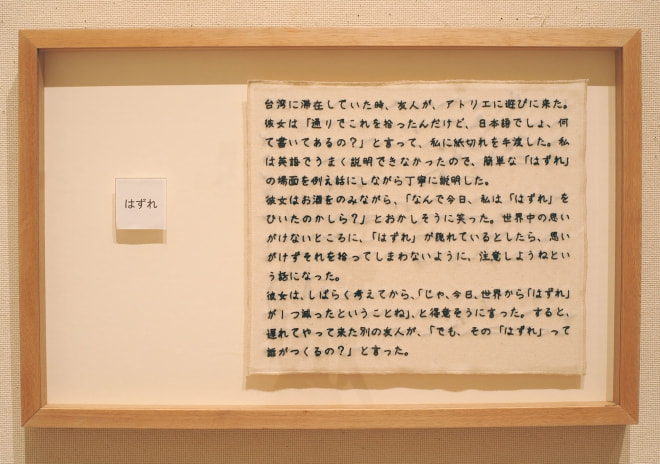 はずれ
台湾に滞在していた時、友人が、アトリエに遊びに来た。
彼女は「通りでこれを拾ったんだけど、日本語でしょ、何
て書いてあるの?」と言って、私に紙切れを手渡した。私
は英語でうまく説明できなかったので、簡単な「はずれ」
の場面を例え話にしながら丁寧に説明した。
彼女はお酒をのみながら、「なんで今日、私は「はずれ」を
ひいたのかしら?」とおかしそうに笑った。世界中の思い
がけないところに、「はずれ」が隠れているとしたら、思い
がけずそれを拾ってしまわないように、注意しようねとい
う話になった。
彼女は、しばらく考えてから、「じゃ、今日、世界から「はずれ」
が1つ減ったということね」、と得意そうに言った。すると、
遅れてやって来た別の友人が、「でも、その「はずれ」って
誰がつくるの?」と言った。